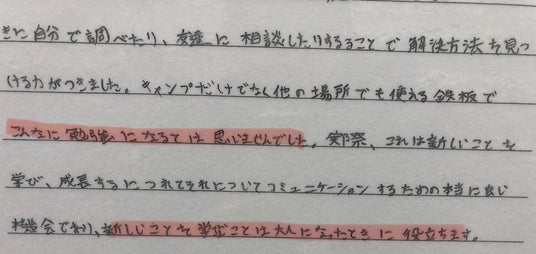 きに自分で調べたり、友達に相談したりすることで解決方法を見つ
ける力がつきました。キャンプだけでなく他の場所でも使える鉄板で
こんなに勉強になるとは思いませんでした。実際、これは新しいことを
学び、成長するにつれてそれについてコミュニケーションするための本当に良い
機会であり、新しいことを学ぶことは大人になったときに役立ちます。